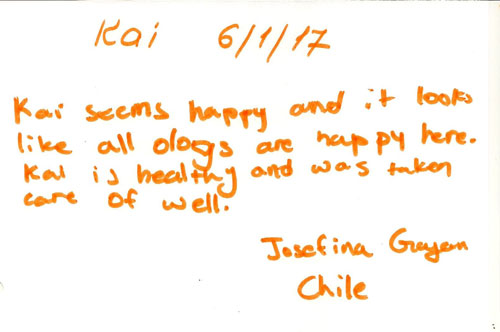 Kai 6/1/17
Kai seems happy and it looks
like all dogs are happy here.
Kai is healthy and was taken
care of well.
Josefina Grayen
Chile